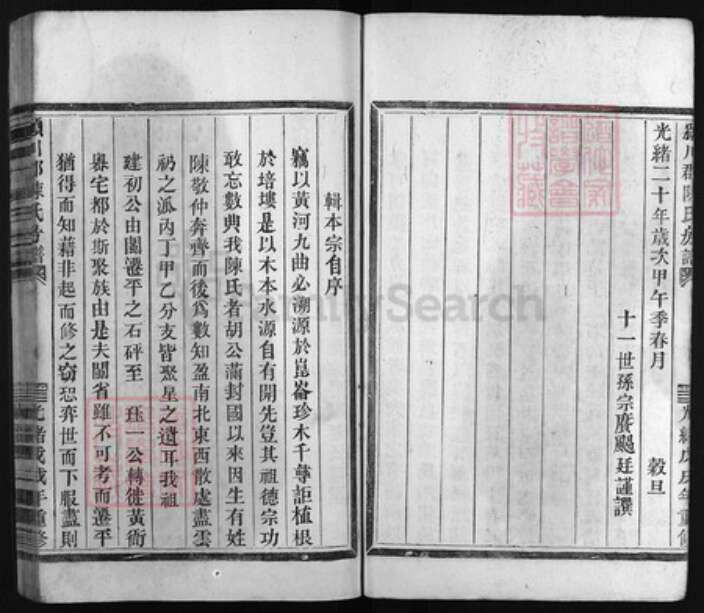 光緒二十年歲次甲午季春月 穀旦
十一世孫宗賡颺廷謹譔
潁川郡陳氏房譜
光緒戊戌年重修
輯本宗自序
竊以黃河九曲必溯源於崑崙珍木千尋詎植根
於培塿是以木本水源自有開先豈其祖德宗功
敢忘數典我陳氏者胡公滿封國以來因生有姓
陳敬仲奔齊而後爲數知盈南北東西散處盡雲
礽之派丙丁甲乙分支皆聚星之遺耳我祖
建初公由閩遷平之石砰至 珏一公轉徙黃衙
舉宅都於斯聚族由是夫閩省雖不可考而遷平
猶得而知藉非起而修之窃恐弈世而下服盡則
潁川郡陳氏房譜
光緒戊戌年重修
FamilySearch